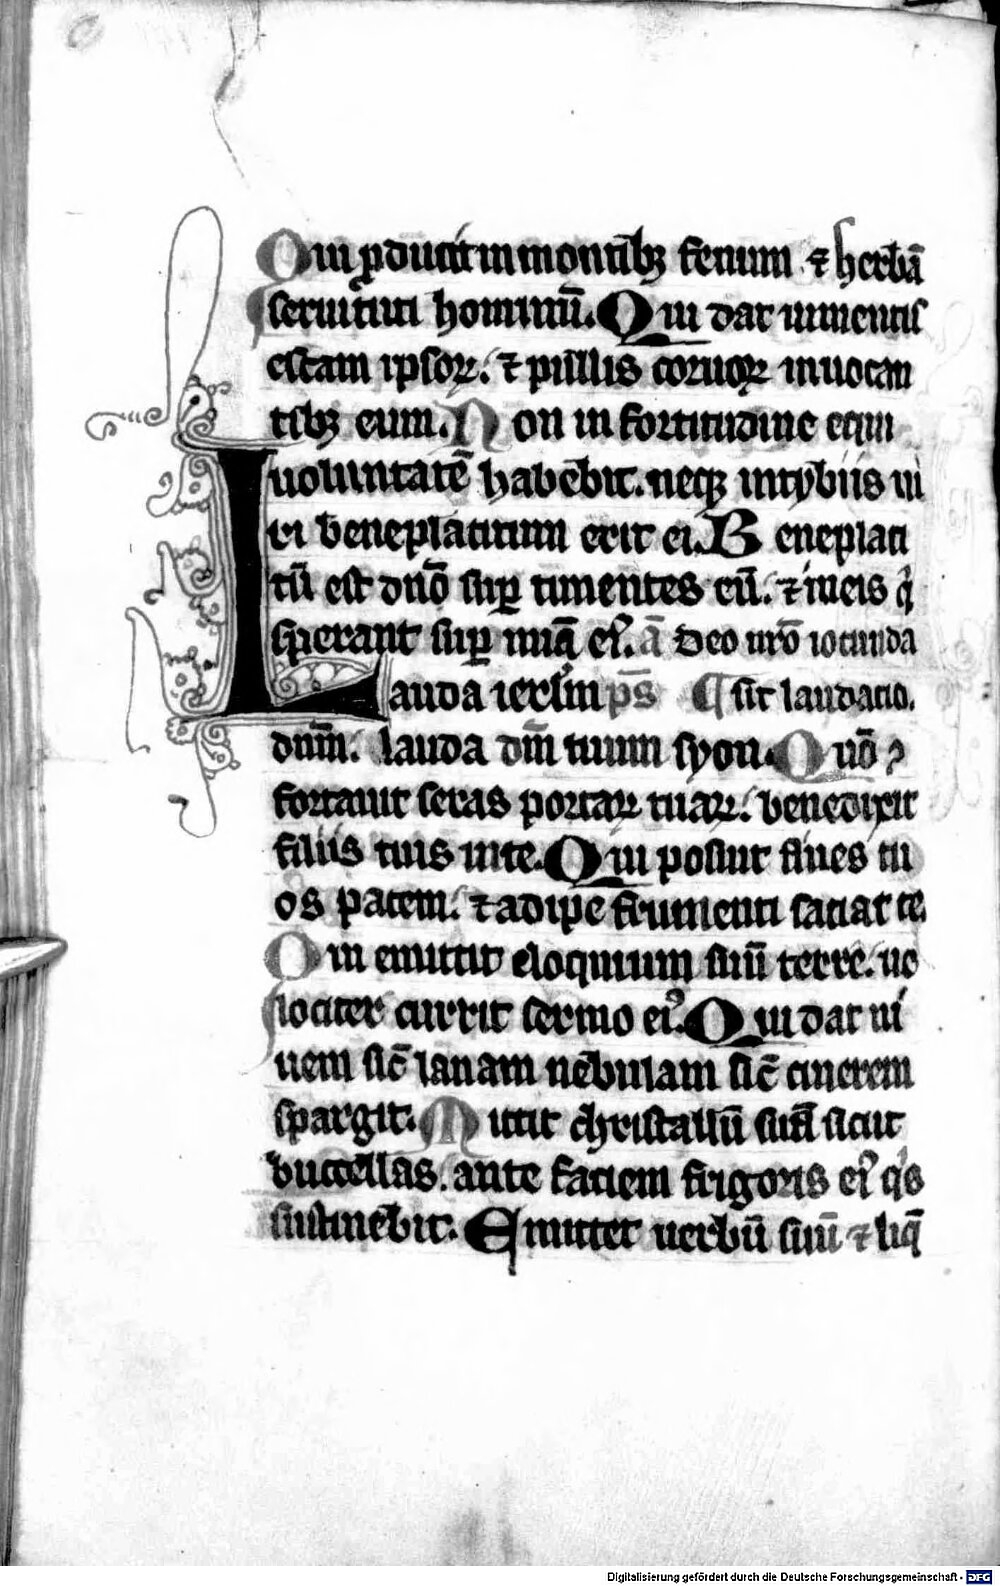 Qui ꝓducit in montibꝫ fenum ⁊ herbā
seruituti hominū. Qui dat iumentis
escam ipsoꝝ. ⁊ pullis coruoꝝ inuocan
tibꝫ eum. Non in fortitudine equi
uoluntatē habebit. neqꝫ in tybiis ui
ri beneplacitum erit ei. Beneplaci
tū est dn̄o suꝑ timentes eū. ⁊ in eis q̇
sperant suꝑ mīa eiꝰ. ā Deo nr̄o iocunda
Lauda ierl̄m p̄s ¶ sit laudatio.
dn̄m. lauda dm̄ tuum syon. Quō ?
fortauit seras portaꝝ tuaꝝ. benedixit
filiis tuis in te. Qui posuit fines tu
os pacem. ⁊ adipe frumenti saciat te.
Qui emittit eloquium suū terre. ue
lociter currit sermo eiꝰ. Qui dat ni
uem sic̄ lanam nebulam sic̄ cinerem
spargit. Mittit christallū suā sicut
buccellas. ante faciem frigoris eiꝰ q̇s
sustinebit. Emittet uerbū suū ⁊ liq̄
Digitalisierung gefördert durch die Deutsche Forschungsgemeinschaft - DFG